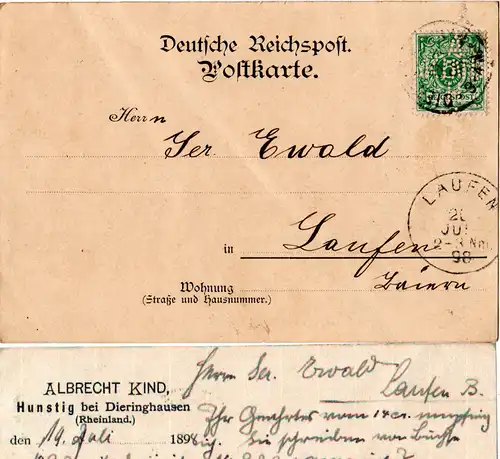 Deutsche Reichspost.
Postkarte.
Herrn
Ser. Ewald
in Laufen
Baiern
Wohnung
(Straße und Hausnummer.)
LAUFEN
JUL
98
ALBRECHT KIND,
Hunstig bei Dieringhausen
(Rheinland.)
den 19. Juli 1898
Herrn Ser. Ewald
Laufen B.
Ihr Geehrtes vom
Sie schreiben von Büchse